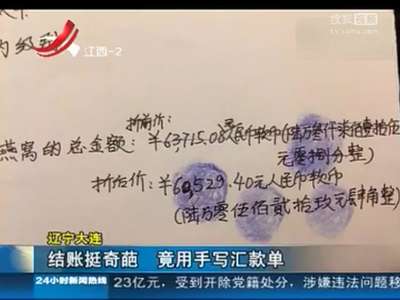 搜狐视频
tv.sohu.com
江西-2
折前价:
燕窝的总金额: ¥63715.08元人民币软币(陆万仟柒佰壹拾伍
元零捌分整)
折后价: ¥60,529.40元人民币软币
(陆万零伍佰贰拾玖元肆角整)
辽宁大连
结账挺奇葩 竟用手写汇款单
24小时新闻热线 23亿元,受到开除党籍处分,涉嫌违法问题移